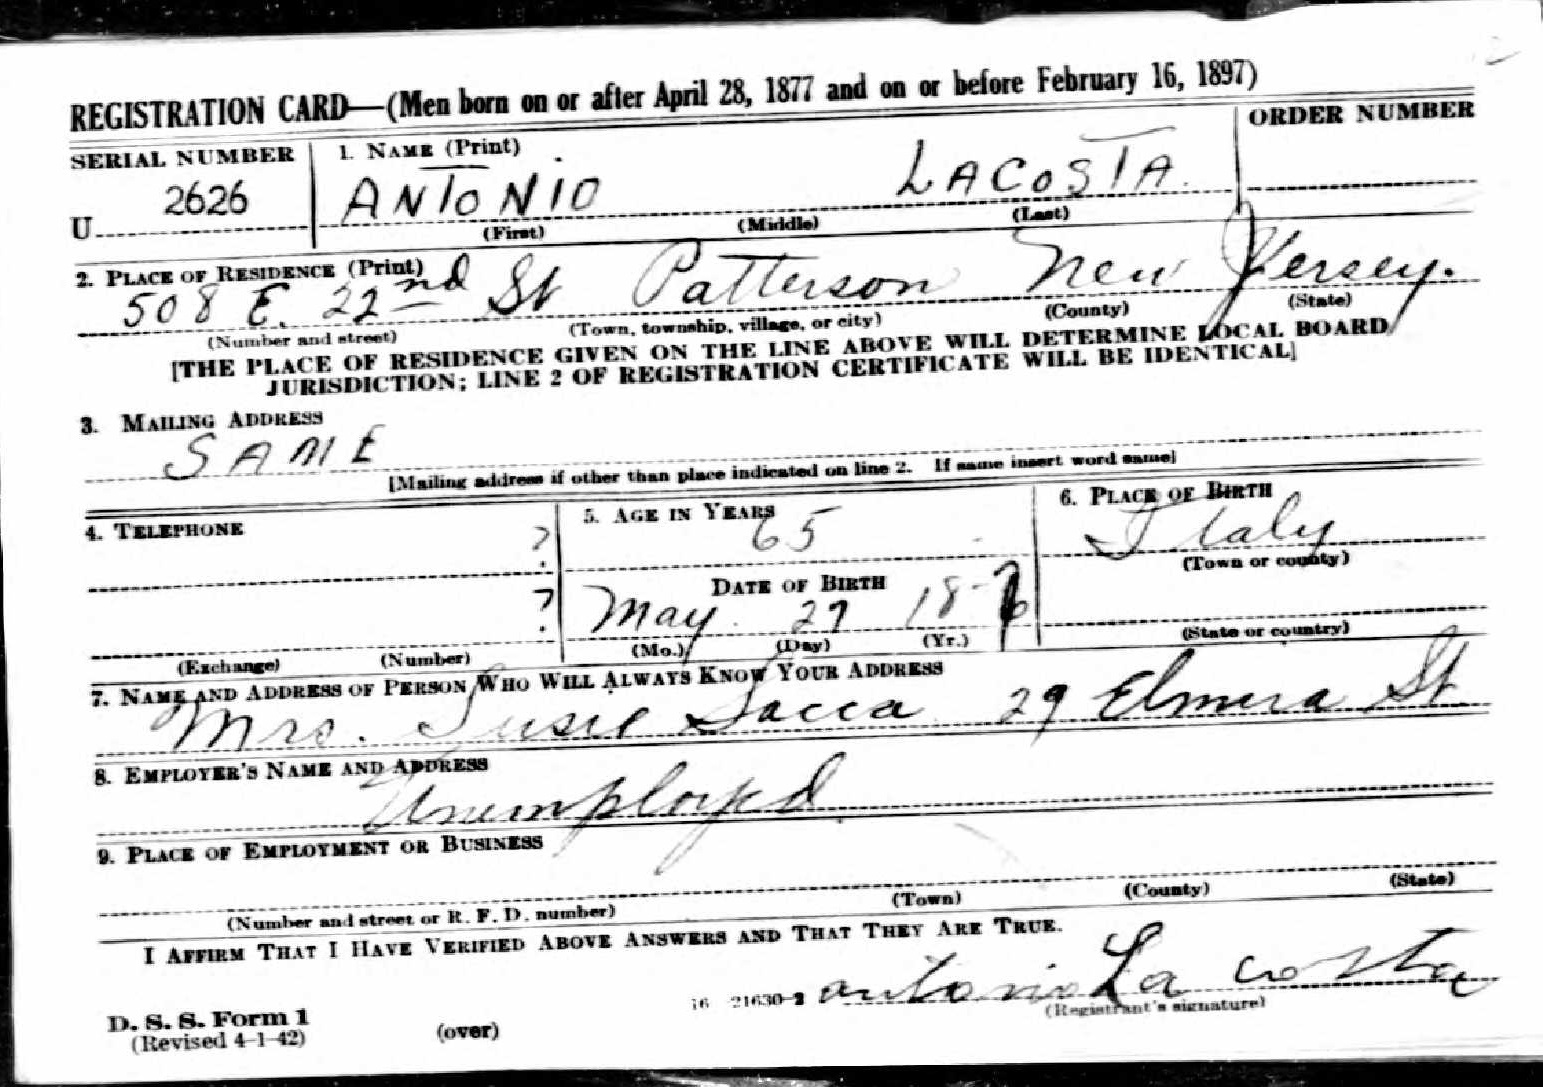 REGISTRATION CARD—(Men born on or after April 28, 1877 and on or before February 16, 1897)
SERIAL NUMBER 1. NAME (Print) ORDER NUMBER
U 2626 ANTONIO LACOSTA
(First) (Middle) (Last)
2. PLACE OF RESIDENCE (Print)
508 E. 22nd St Patterson New Jersey.
(Number and street) (Town, township, village, or city) (County) (State)
[THE PLACE OF RESIDENCE GIVEN ON THE LINE ABOVE WILL DETERMINE LOCAL BOARD
JURISDICTION; LINE 2 OF REGISTRATION CERTIFICATE WILL BE IDENTICAL]
3. MAILING ADDRESS
SAME
[Mailing address if other than place indicated on line 2. If same insert word same]
4. TELEPHONE 5. AGE IN YEARS 6. PLACE OF BIRTH
? 65 Italy
DATE OF BIRTH (Town or county)
? May 27 18
(Exchange) (Number) (Mo.) (Day) (Yr.) (State or country)
7. NAME AND ADDRESS OF PERSON WHO WILL ALWAYS KNOW YOUR ADDRESS
Mrs. Susie Sacca 29 Elmera St
8. EMPLOYER'S NAME AND ADDRESS
Unemployed
9. PLACE OF EMPLOYMENT OR BUSINESS
(Number and street or R. F. D. number) (Town) (County) (State)
I AFFIRM THAT I HAVE VERIFIED ABOVE ANSWERS AND THAT THEY ARE TRUE.
antonio La costa
D. S. S. Form 1 16 21630-2 (Registrant's signature)
(Revised 4-1-42) (over)